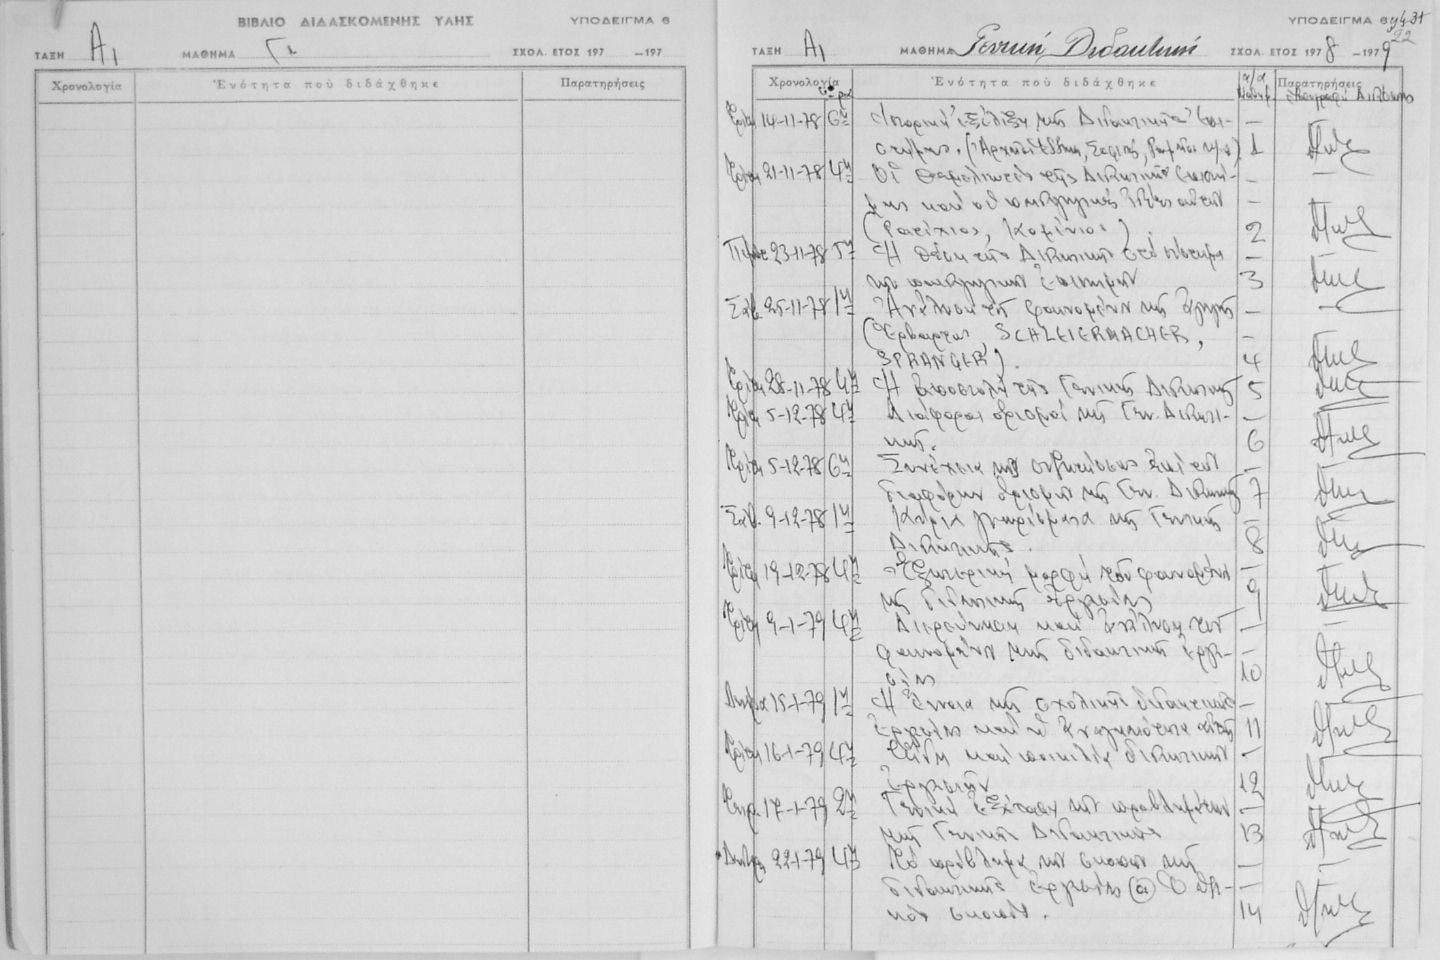 ΒΙΒΛΙΟ ΔΙΔΑΣΚΟΜΕΝΗΣ ΥΛΗΣ ΥΠΟΔΕΙΓΜΑ 6
ΤΑΞΗ Α1 ΜΑΘΗΜΑ ΣΧΟΛ. ΕΤΟΣ 197 –197
Χρονολογία Ἑνότητα ποὺ διδάχθηκε Παρατηρήσεις
ΥΠΟΔΕΙΓΜΑ 6
22
ΤΑΞΗ Α1 ΜΑΘΗΜΑ Γενική Διδακτική ΣΧΟΛ. ΕΤΟΣ 1978 –1979
Χρονολογία Ὥρα Ἑνότητα ποὺ διδάχθηκε α/α Μαθημ. Παρατηρήσεις
Τρίτη 14-11-78 6η Ἱστορική ἐξέλιξη τῆς Διδακτικῆς Ἐπι- –
στήμης. 1
Τρίτη 21-11-78 4η Οἱ θεμελιωτές τῆς Διδακτικῆς Ἐπιστή- –
μης καί οἱ παιδαγωγικές ἰδέες αὐτῶν –
(Ρατίχιος, Κομένιος). 2
Πέμπτ 23-11-78 5η Ἡ θέση τῆς Διδακτικῆς στό σύστημα –
τῶν παιδαγωγικῶν ἐπιστημῶν 3
Σάβ. 25-11-78 1η Ἀνάλυση τοῦ φαινομένου τῆς ἀγωγῆς –
(Ἕρβαρτος, SCHLEIERMACHER, –
SPRANGER). 4
Τρίτη 28-11-78 4η Ἡ ἀποστολή τῆς Γενικῆς Διδακτικῆς 5
Τρίτη 5-12-78 4η Διάφοροι ὁρισμοί τῆς Γεν. Διδακτι- –
κῆς. 6
Τρίτη 5-12-78 6η Συνέχεια τῆς συζητήσεως ἐπί τῶν –
διαφόρων ὁρισμῶν τῆς Γεν. Διδακτικῆς 7
Σάβ. 9-12-78 1η Κύρια γνωρίσματα τῆς Γενικῆς –
Διδακτικῆς. 8
Τρίτη 19-12-78 4η Ἐξωτερική μορφή τοῦ φαινομένου –
τῆς διδακτικῆς ἐργασίας 9
Τρίτη 9-1-79 4η Διερεύνηση καί ἀνάλυση τοῦ –
φαινομένου τῆς διδακτικῆς ἐργα- –
σίας 10
Δευτέρα 15-1-79 1η Ἡ ἔννοια τῆς σχολικῆς διδακτικῆς –
ἐργασίας καί ἡ ἀναγκαιότητα αὐτῆς 11
Τρίτη 16-1-79 4η Εἴδη καί ποικιλία διδακτικῶν –
ἐργασιῶν 12
Τετρ. 17-1-79 2η Γενική ἐξέταση τῶν προβλημάτων –
τῆς Γενικῆς Διδακτικῆς 13
Δευτέρ 22-1-79 4η Τό πρόβλημα τῶν σκοπῶν τῆς –
διδακτικῆς ἐργασίας (α) Ὁ ὑλι- –
κός σκοπός. 14